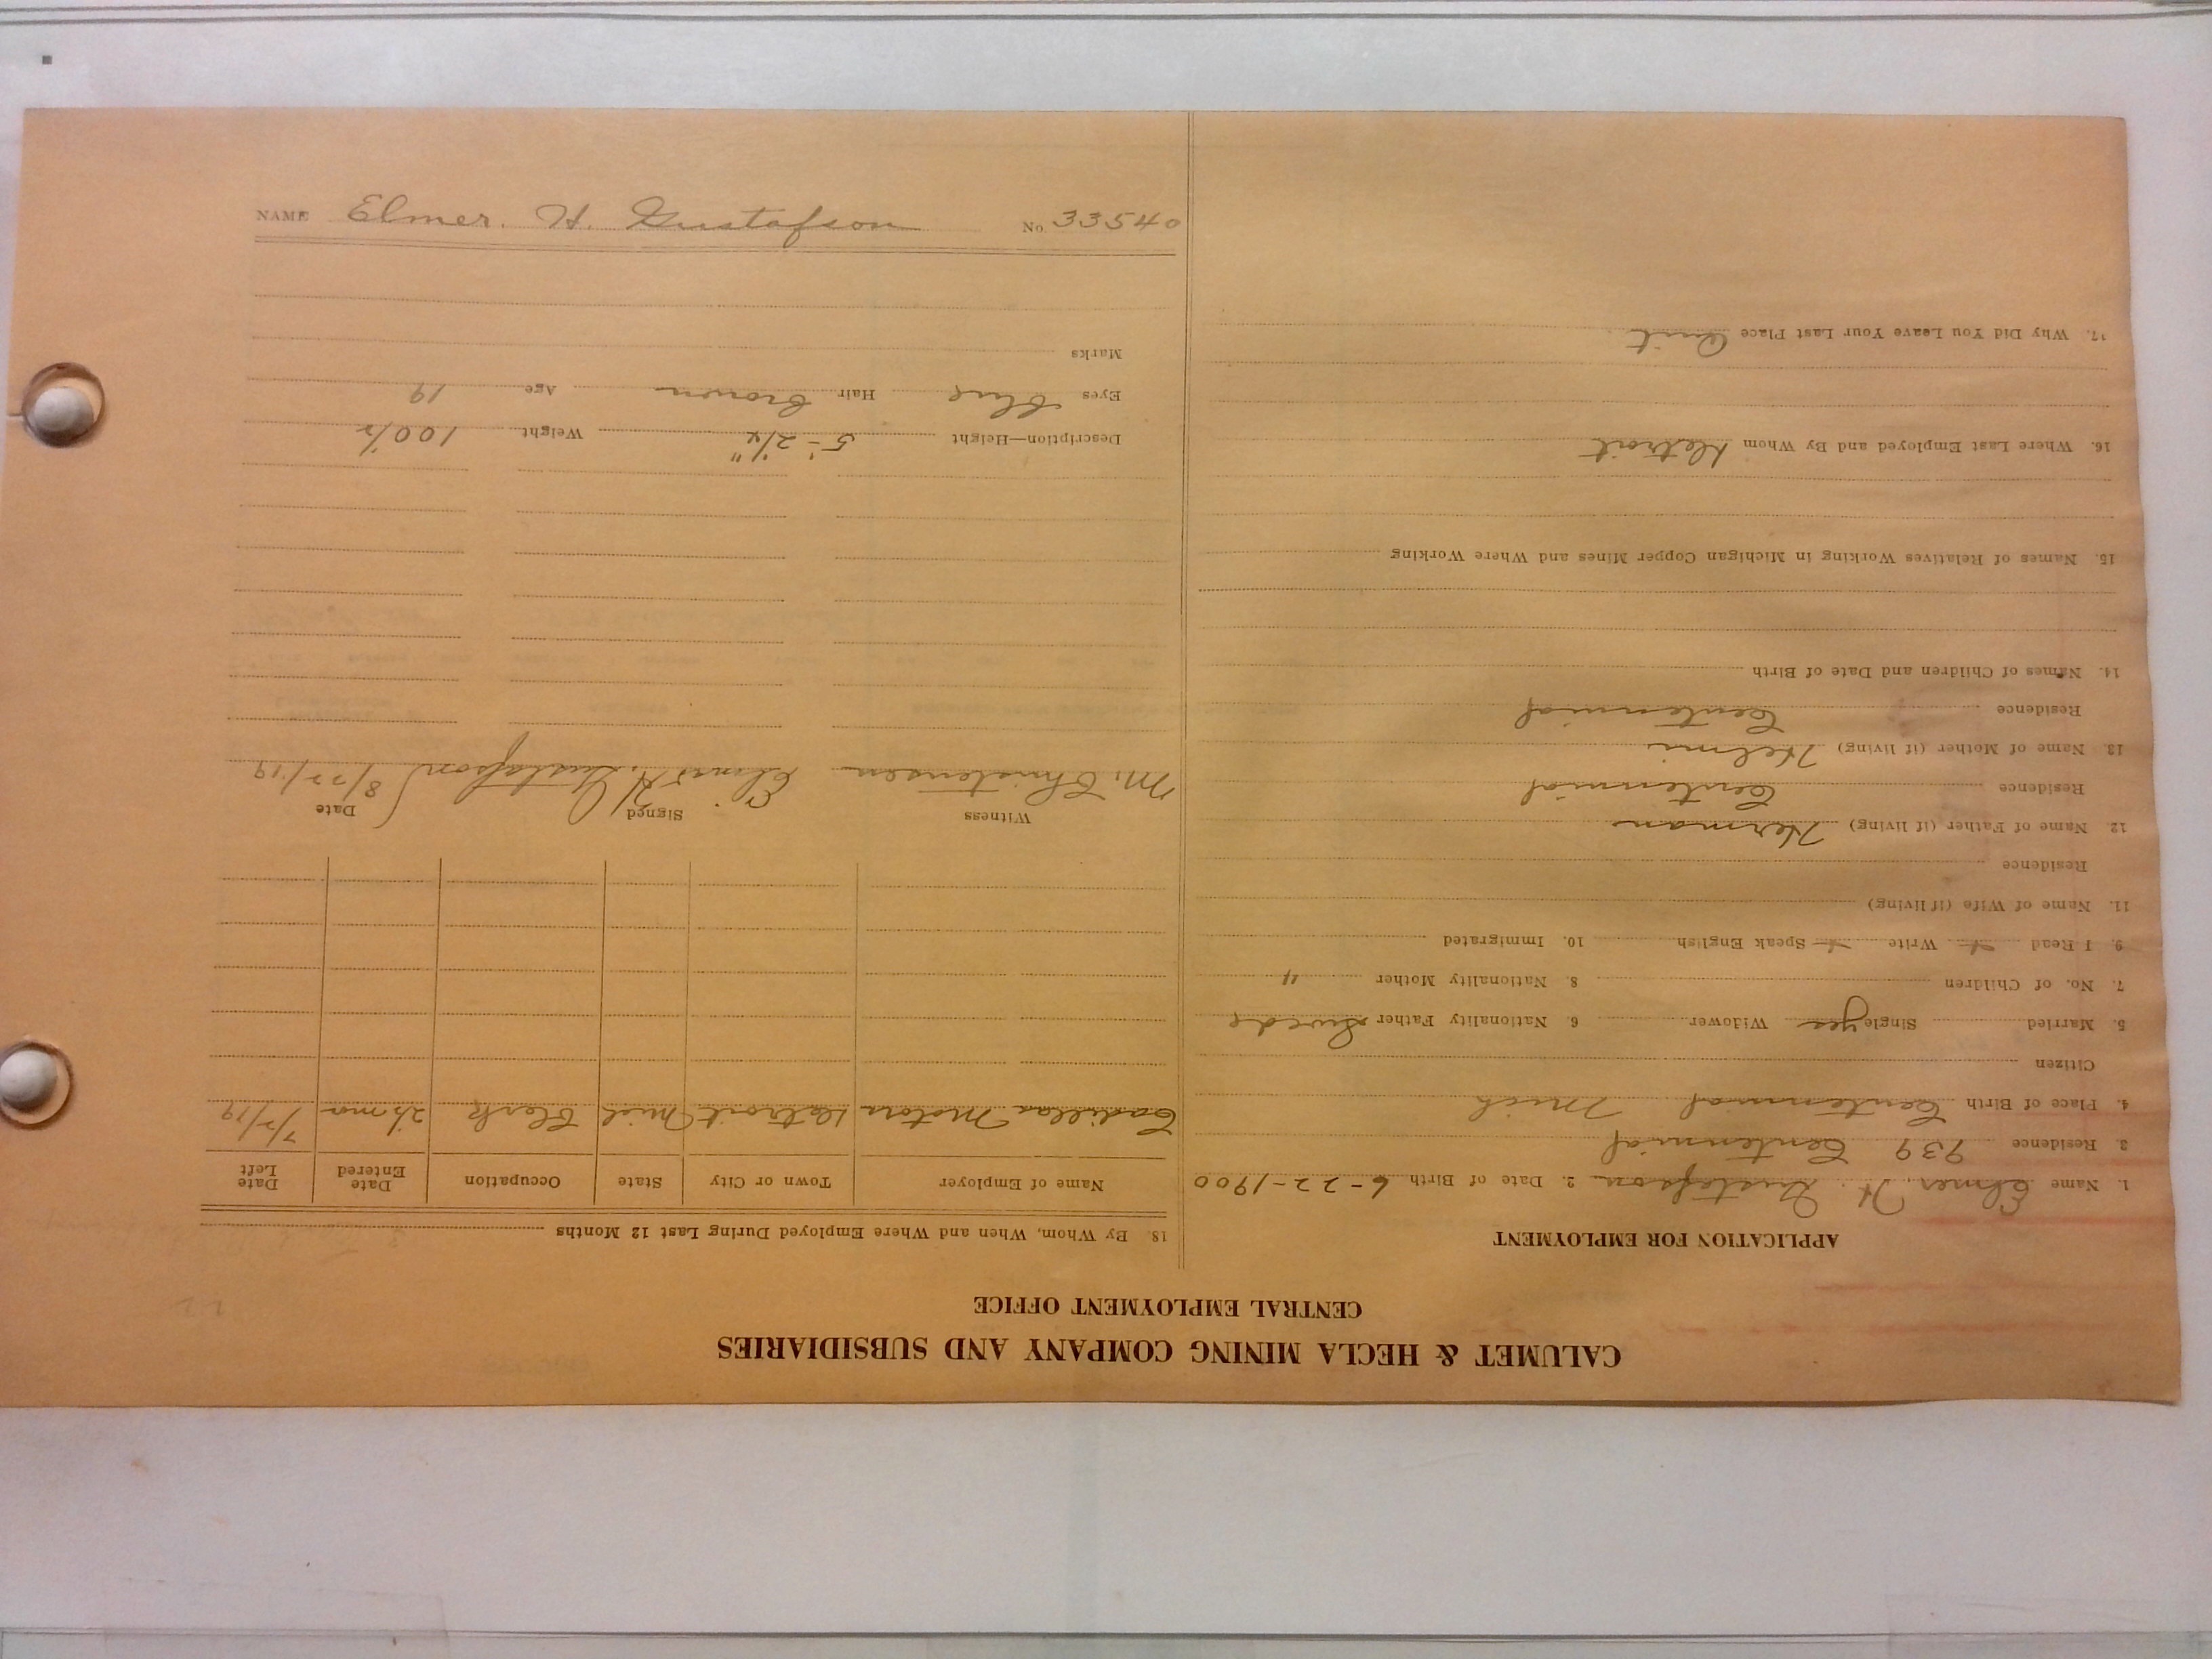 CALUMET & HECLA MINING COMPANY AND SUBSIDIARIES
CENTRAL EMPLOYMENT OFFICE
APPLICATION FOR EMPLOYMENT
1. Name Elmer H. Gustafson 2. Date of Birth 6-22-1900
3. Residence 939 Centennial
4. Place of Birth Centennial Mich
Citizen
5. Married Single yes Widower 6. Nationality Father Swede
7. No. of Children 8. Nationality Mother "
9. I Read Write Speak English 10. Immigrated
11. Name of Wife (if living)
Residence
12. Name of Father (if living) Herman
Residence Centennial
13. Name of Mother (if living) Helma
Residence Centennial
14. Names of Children and Date of Birth
15. Names of Relatives Working in Michigan Copper Mines and Where Working
16. Where Last Employed and By Whom Detroit
17. Why Did You Leave Your Last Place Quit
18. By Whom, When and Where Employed During Last 12 Months
Name of Employer Town or City State Occupation Date Entered Date Left
Cadillac Motors Detroit Mich Clerk 2½ mos 7/2/19
Witness Signed Date
M. Christensen Elmer H. Gustafson 8/22/19
Description—Height 5'-2¼" Weight 100½
Eyes Blue Hair Brown Age 19
Marks
NAME Elmer. H. Gustafson No. 33540